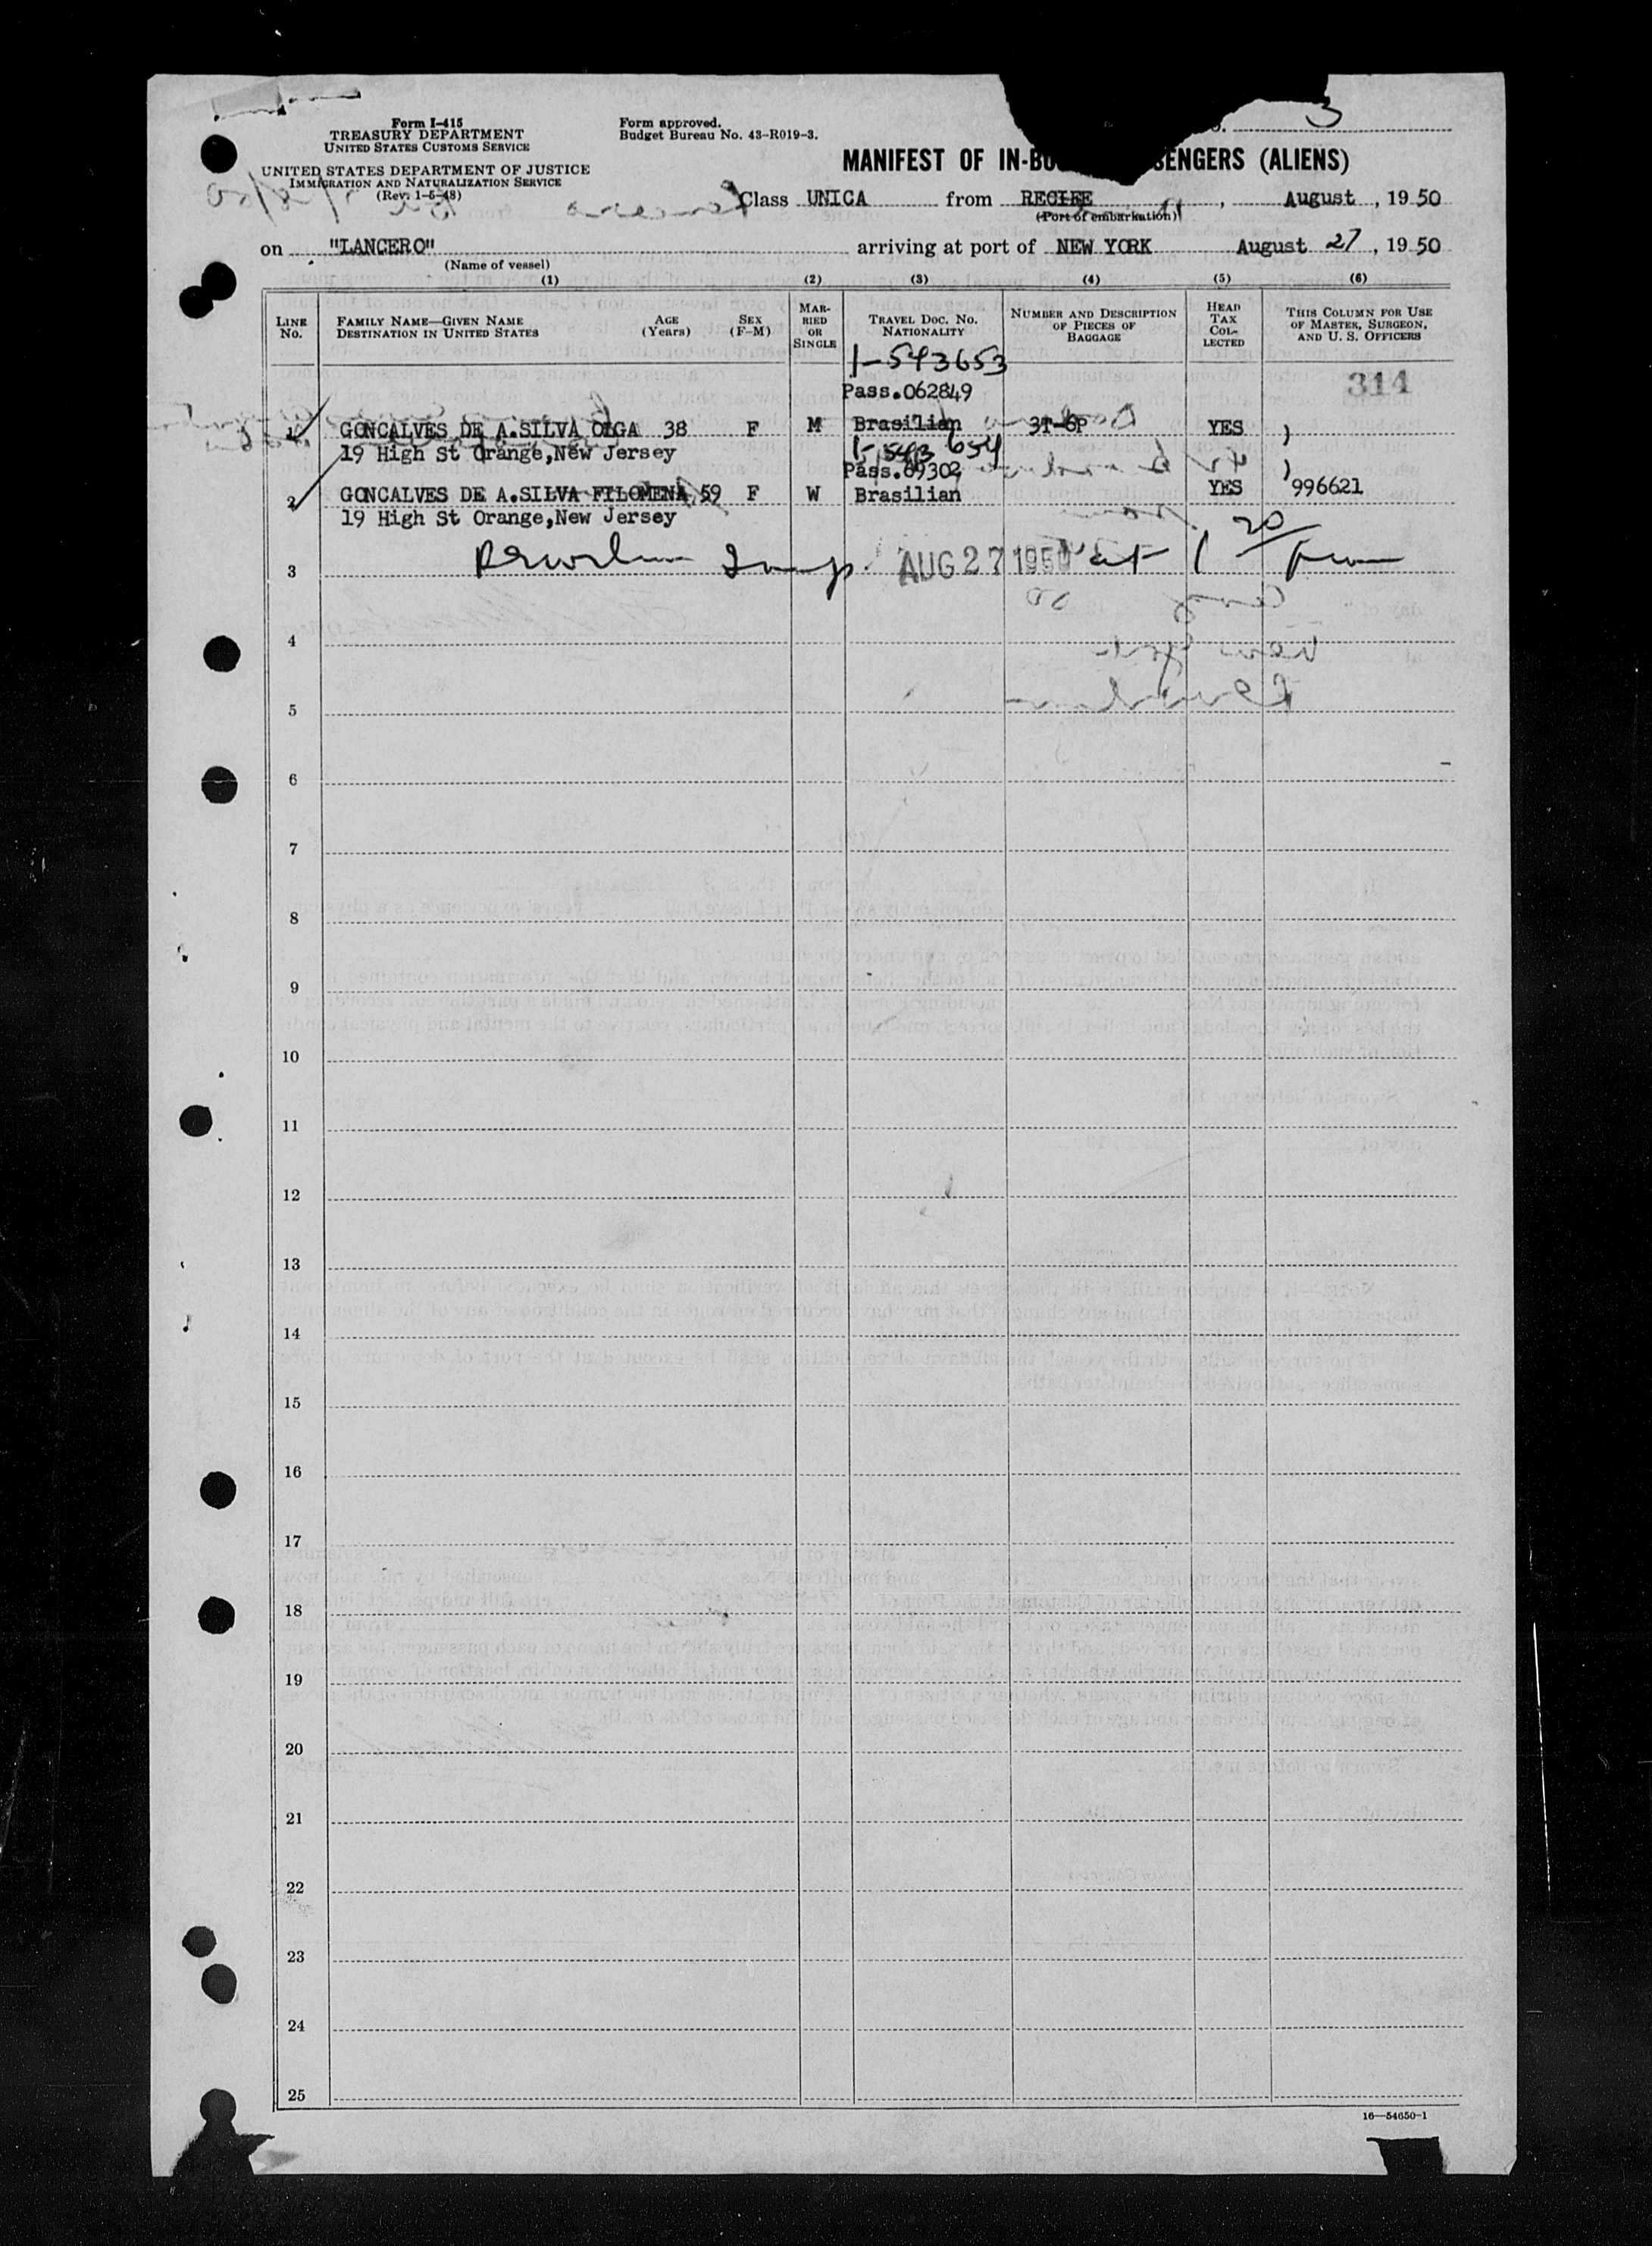 3
Form I-415
TREASURY DEPARTMENT
UNITED STATES CUSTOMS SERVICE
UNITED STATES DEPARTMENT OF JUSTICE
IMMIGRATION AND NATURALIZATION SERVICE
(Rev. 1-5-48)
Form approved.
Budget Bureau No. 43-R019-3.
MANIFEST OF IN-BO SENGERS (ALIENS)
Class UNICA from RECIFE, August, 1950
(Port of embarkation)
on "LANCERO" arriving at port of NEW YORK August 27, 1950
(Name of vessel)
(1) (2) (3) (4) (5) (6)
LINE No. FAMILY NAME—GIVEN NAME DESTINATION IN UNITED STATES AGE (Years) SEX (F-M) MARRIED OR SINGLE TRAVEL DOC. No. NATIONALITY NUMBER AND DESCRIPTION OF PIECES OF BAGGAGE HEAD TAX COLLECTED THIS COLUMN FOR USE OF MASTER, SURGEON, AND U. S. OFFICERS
1-543653
Pass.062849 314
1 GONCALVES DE A.SILVA OLGA 38 F M Brasilian 3T-6P YES )
19 High St Orange,New Jersey 1-543654
Pass.69302 )
2 GONCALVES DE A.SILVA FILOMENA 59 F W Brasilian YES 996621
19 High St Orange,New Jersey
3 AUG 27 1950 at 1 20/ pm
4
5
6
7
8
9
10
11
12
13
14
15
16
17
18
19
20
21
22
23
24
25
16—54650-1